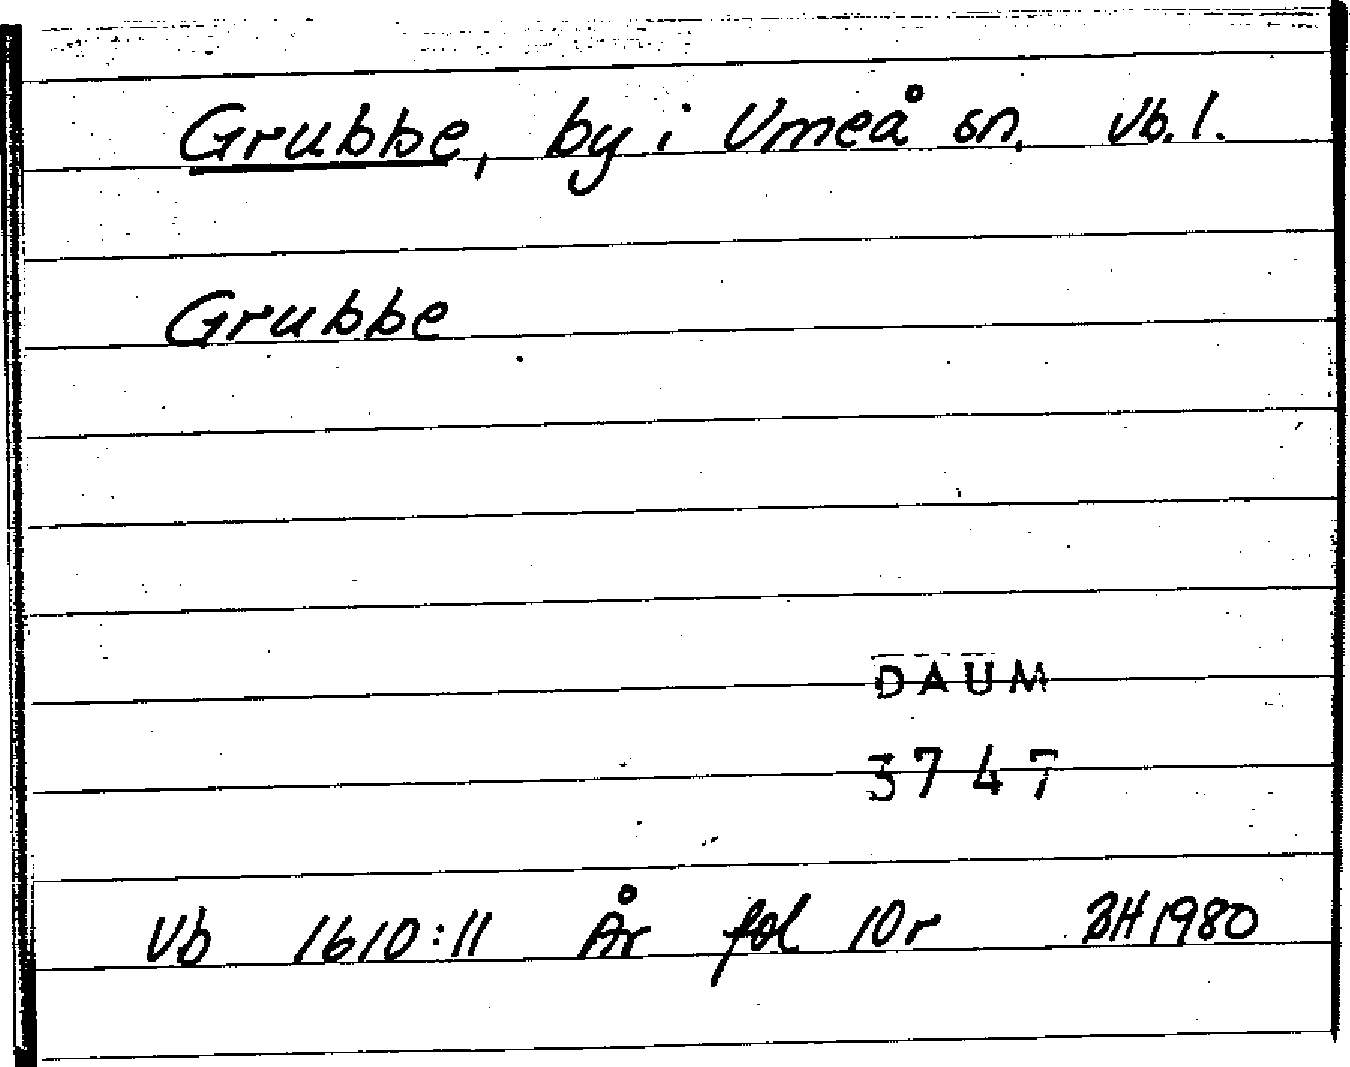 Grubbe, by i Umeå sn. Vb. l.
Grubbe
DAUM
3747
Vb 1610:11 År fol 10r BH 1980